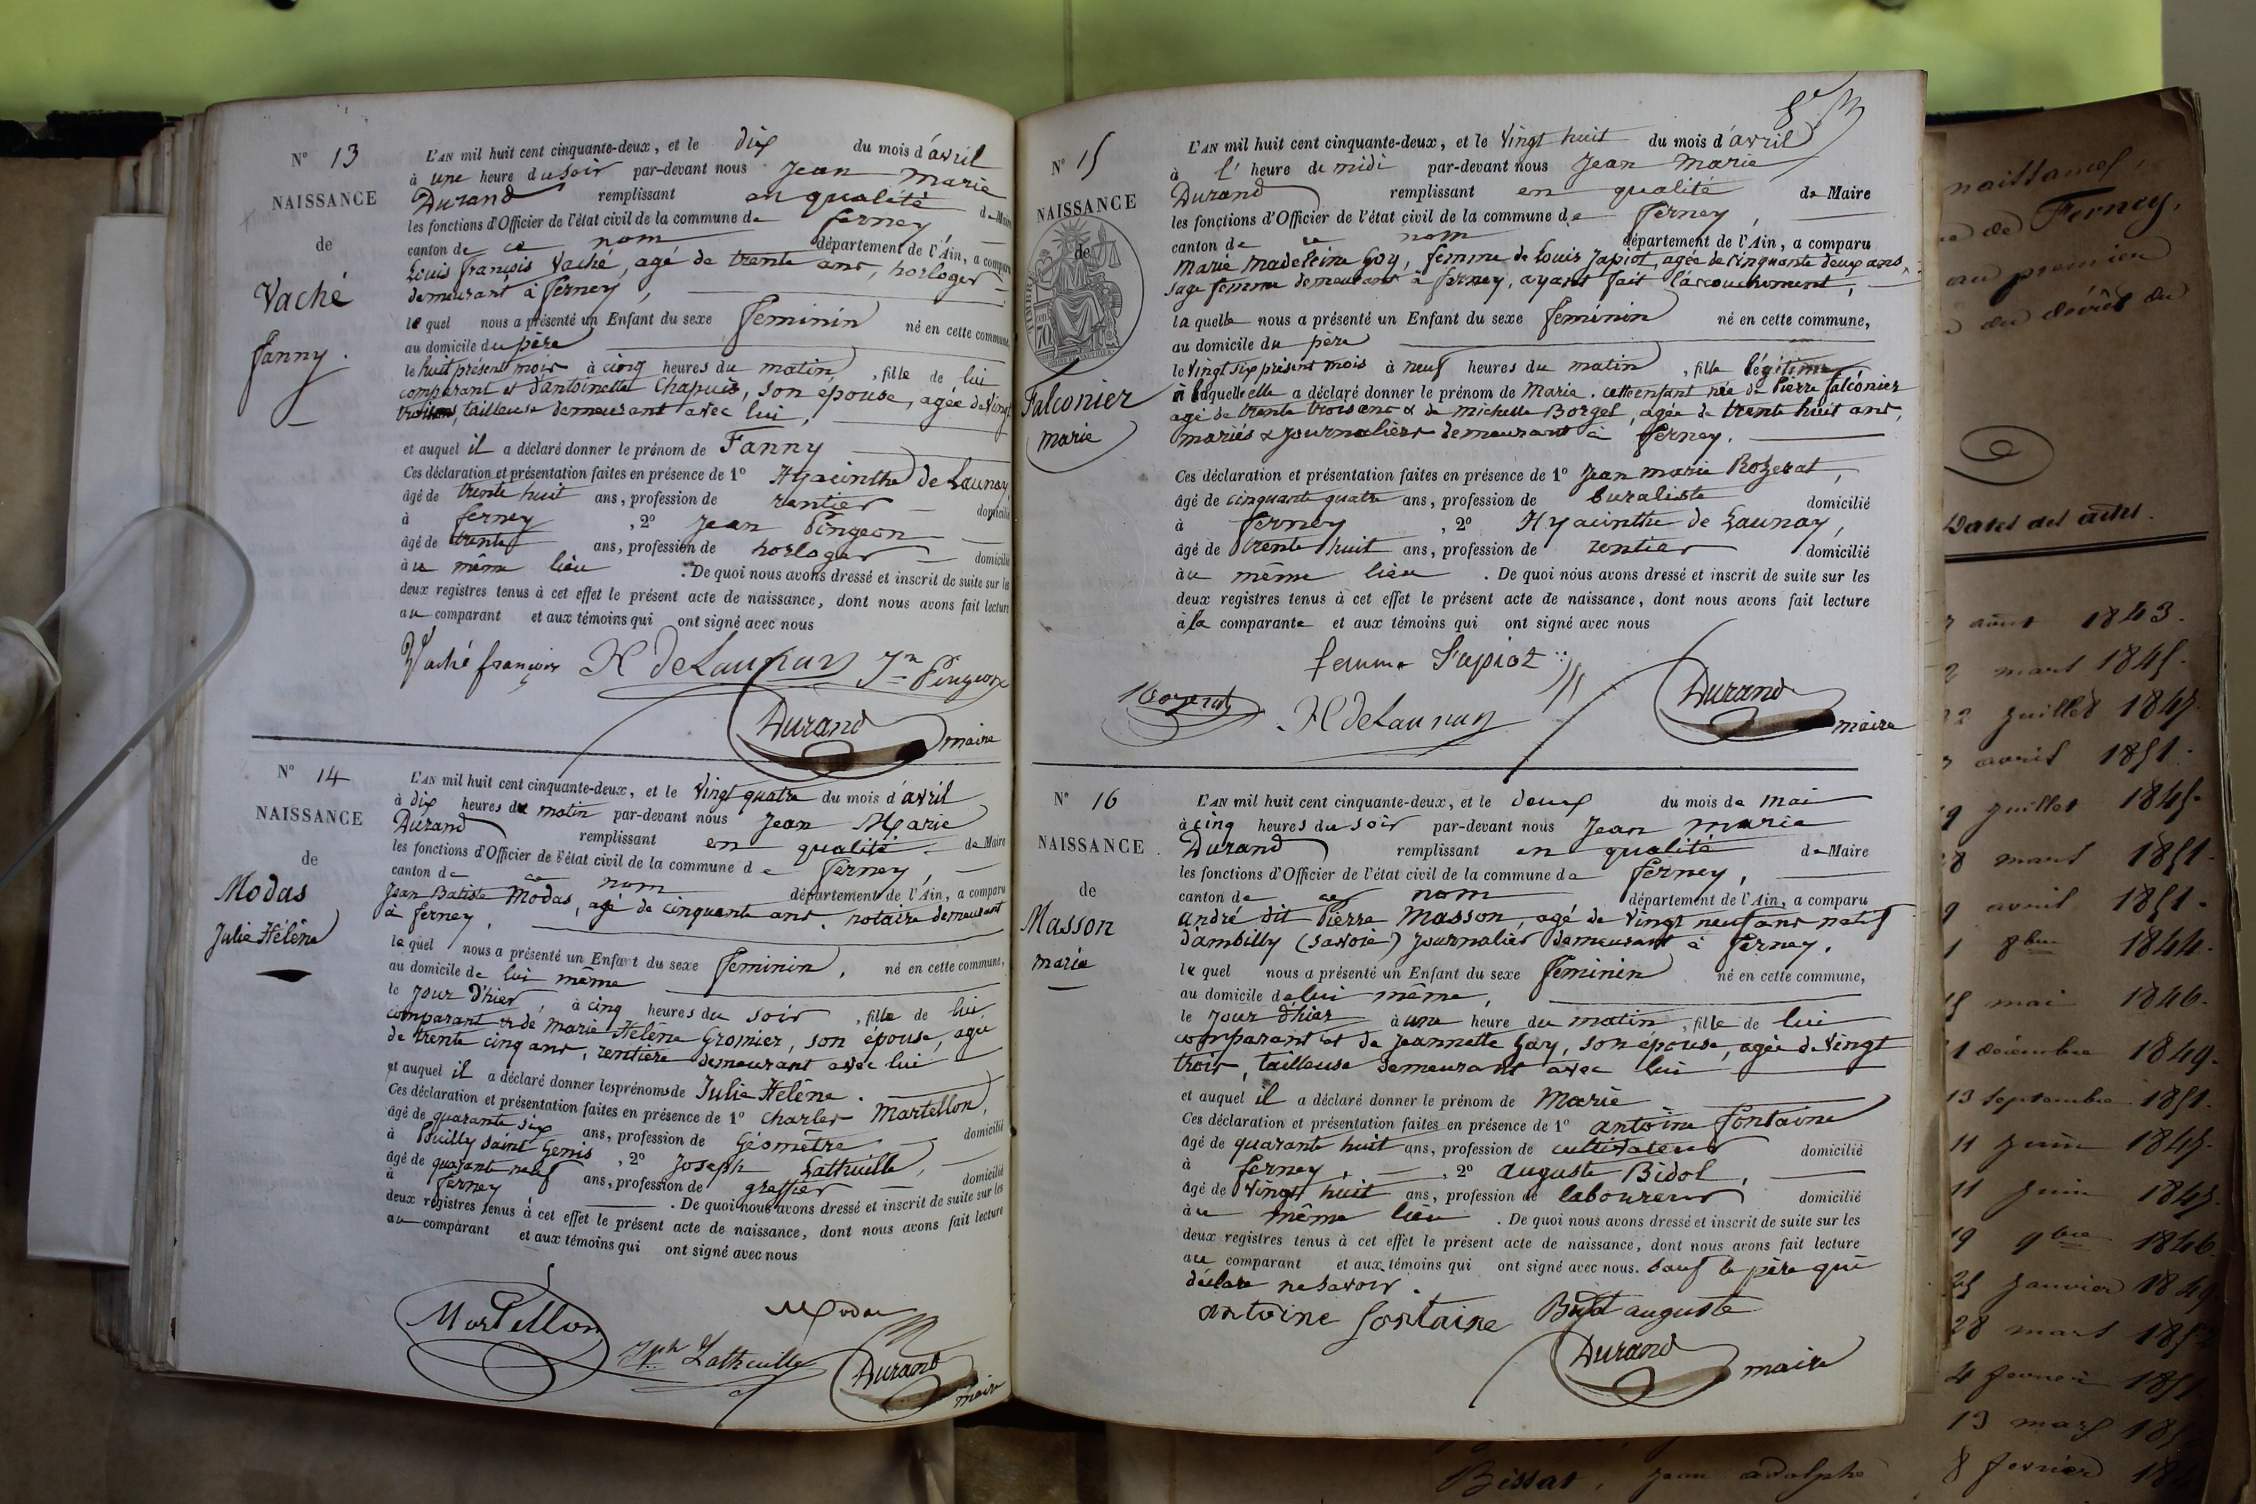 N° 13
NAISSANCE
de
Vaché
fanny.
L'AN mil huit cent cinquante-deux, et le dix du mois d'avril
à une heure du soir par-devant nous Jean Marie
Durand remplissant en qualité de Maire
les fonctions d'Officier de l'état civil de la commune de ferney,
canton de ce nom département de l'Ain, a comparu
Louis françois Vaché, agé de trente ans, horloger
demeurant à ferney,
lequel nous a présenté un Enfant du sexe feminin né en cette commune,
au domicile du père
le huit présent mois à cinq heures du matin, fille de lui
comparant et d'antoinette Chapuis, son épouse, agée de vingt
tailleuse demeurant avec lui,
et auquel il a déclaré donner le prénom de Fanny
Ces déclaration et présentation faites en présence de 1° Hyacinthe de Launay,
âgé de trente huit ans, profession de rentier domicilié
à ferney, 2° Jean Pingeon
âgé de trente ans, profession de horloger domicilié
au même lieu. De quoi nous avons dressé et inscrit de suite sur les
deux registres tenus à cet effet le présent acte de naissance, dont nous avons fait lecture
au comparant et aux témoins qui ont signé avec nous
Vaché françois H de Launay Jn Pingeon
Durand maire
N° 14
NAISSANCE
de
Modas
Julie Hélène
L'AN mil huit cent cinquante-deux, et le vingt quatre du mois d'avril
à dix heures du matin par-devant nous Jean Marie
Durand remplissant en qualité de Maire
les fonctions d'Officier de l'état civil de la commune de ferney,
canton de ce nom département de l'Ain, a comparu
Jean Batiste Modas, agé de cinquante ans, notaire demeurant
à ferney,
lequel nous a présenté un Enfant du sexe feminin, né en cette commune,
au domicile de lui même
le jour d'hier, à cinq heures du soir, fille de lui
comparant & de marie Hélène Gromier, son épouse, agée
de trente cinq ans, rentière demeurant avec lui
et auquel il a déclaré donner les prénoms de Julie Hélène.
Ces déclaration et présentation faites en présence de 1° Charles Martellon,
âgé de quarante six ans, profession de Géomètre domicilié
à Pouilly saint Genis, 2° Joseph Lathuille,
âgé de quarante neuf ans, profession de greffier domicilié
à ferney. De quoi nous avons dressé et inscrit de suite sur les
deux registres tenus à cet effet le présent acte de naissance, dont nous avons fait lecture
au comparant et aux témoins qui ont signé avec nous
Modas
Martellon
Jph Lathuille Durand maire
N° 15
NAISSANCE
de
Falconier
marie
L'AN mil huit cent cinquante-deux, et le vingt huit du mois d'avril
à l' heure de midi par-devant nous Jean Marie
Durand remplissant en qualité de Maire
les fonctions d'Officier de l'état civil de la commune de ferney,
canton de ce nom département de l'Ain, a comparu
Marie Madeleine Goy, femme de Louis Japiot, agée de cinquante deux ans,
sage femme demeurant à ferney, ayant fait l'accouchement,
laquelle nous a présenté un Enfant du sexe feminin né en cette commune,
au domicile du père
le vingt six présent mois à neuf heures du matin, fille légitime
à laquelle elle a déclaré donner le prénom de Marie. cette enfant née de Pierre falconier
agé de trente trois ans & de michelle Borget, agée de trente huit ans,
mariés & journaliers demeurant à ferney.
Ces déclaration et présentation faites en présence de 1° Jean marie Rozerat,
âgé de cinquante quatre ans, profession de buraliste domicilié
à ferney, 2° Hyacinthe de Launay,
âgé de trente huit ans, profession de rentier domicilié
au même lieu. De quoi nous avons dressé et inscrit de suite sur les
deux registres tenus à cet effet le présent acte de naissance, dont nous avons fait lecture
à la comparante et aux témoins qui ont signé avec nous
femme Japiot
Rozerat H de Launay Durand maire
N° 16
NAISSANCE
de
Masson
marie
L'AN mil huit cent cinquante-deux, et le deux du mois de mai
à cinq heures du soir par-devant nous Jean marie
Durand remplissant en qualité de Maire
les fonctions d'Officier de l'état civil de la commune de ferney,
canton de ce nom département de l'Ain, a comparu
andré dit Pierre Masson, agé de vingt neuf ans natif
d'ambilly (savoie) journalier demeurant à ferney,
lequel nous a présenté un Enfant du sexe feminin né en cette commune,
au domicile de lui même,
le jour d'hier à une heure du matin, fille de lui
comparant et de Jeannette Gay, son épouse, agée de vingt
trois, tailleuse demeurant avec lui
et auquel il a déclaré donner le prénom de Marie
Ces déclaration et présentation faites en présence de 1° antoine fontaine
âgé de quarante huit ans, profession de cultivateur domicilié
à ferney, 2° auguste Bidol,
âgé de vingt huit ans, profession de laboureur domicilié
au même lieu. De quoi nous avons dressé et inscrit de suite sur les
deux registres tenus à cet effet le présent acte de naissance, dont nous avons fait lecture
au comparant et aux témoins qui ont signé avec nous. sauf le père qui
déclare ne savoir.
antoine fontaine Bidol auguste
Durand maire
naissances,
de Ferney,
au premier
du décret du
Dates des actes.
août 1843.
mars 1845.
juillet 1845.
avril 1851.
juillet 1845.
mars 1851.
avril 1851.
8bre 1844.
mai 1846.
décembre 1849.
13 septembre 1851.
11 juin 1845.
11 juin 1845.
9bre 1846.
janvier 1849
28 mars
4 fevrier 1851
13 mars
Bissat, jean adolphe 8 fevrier